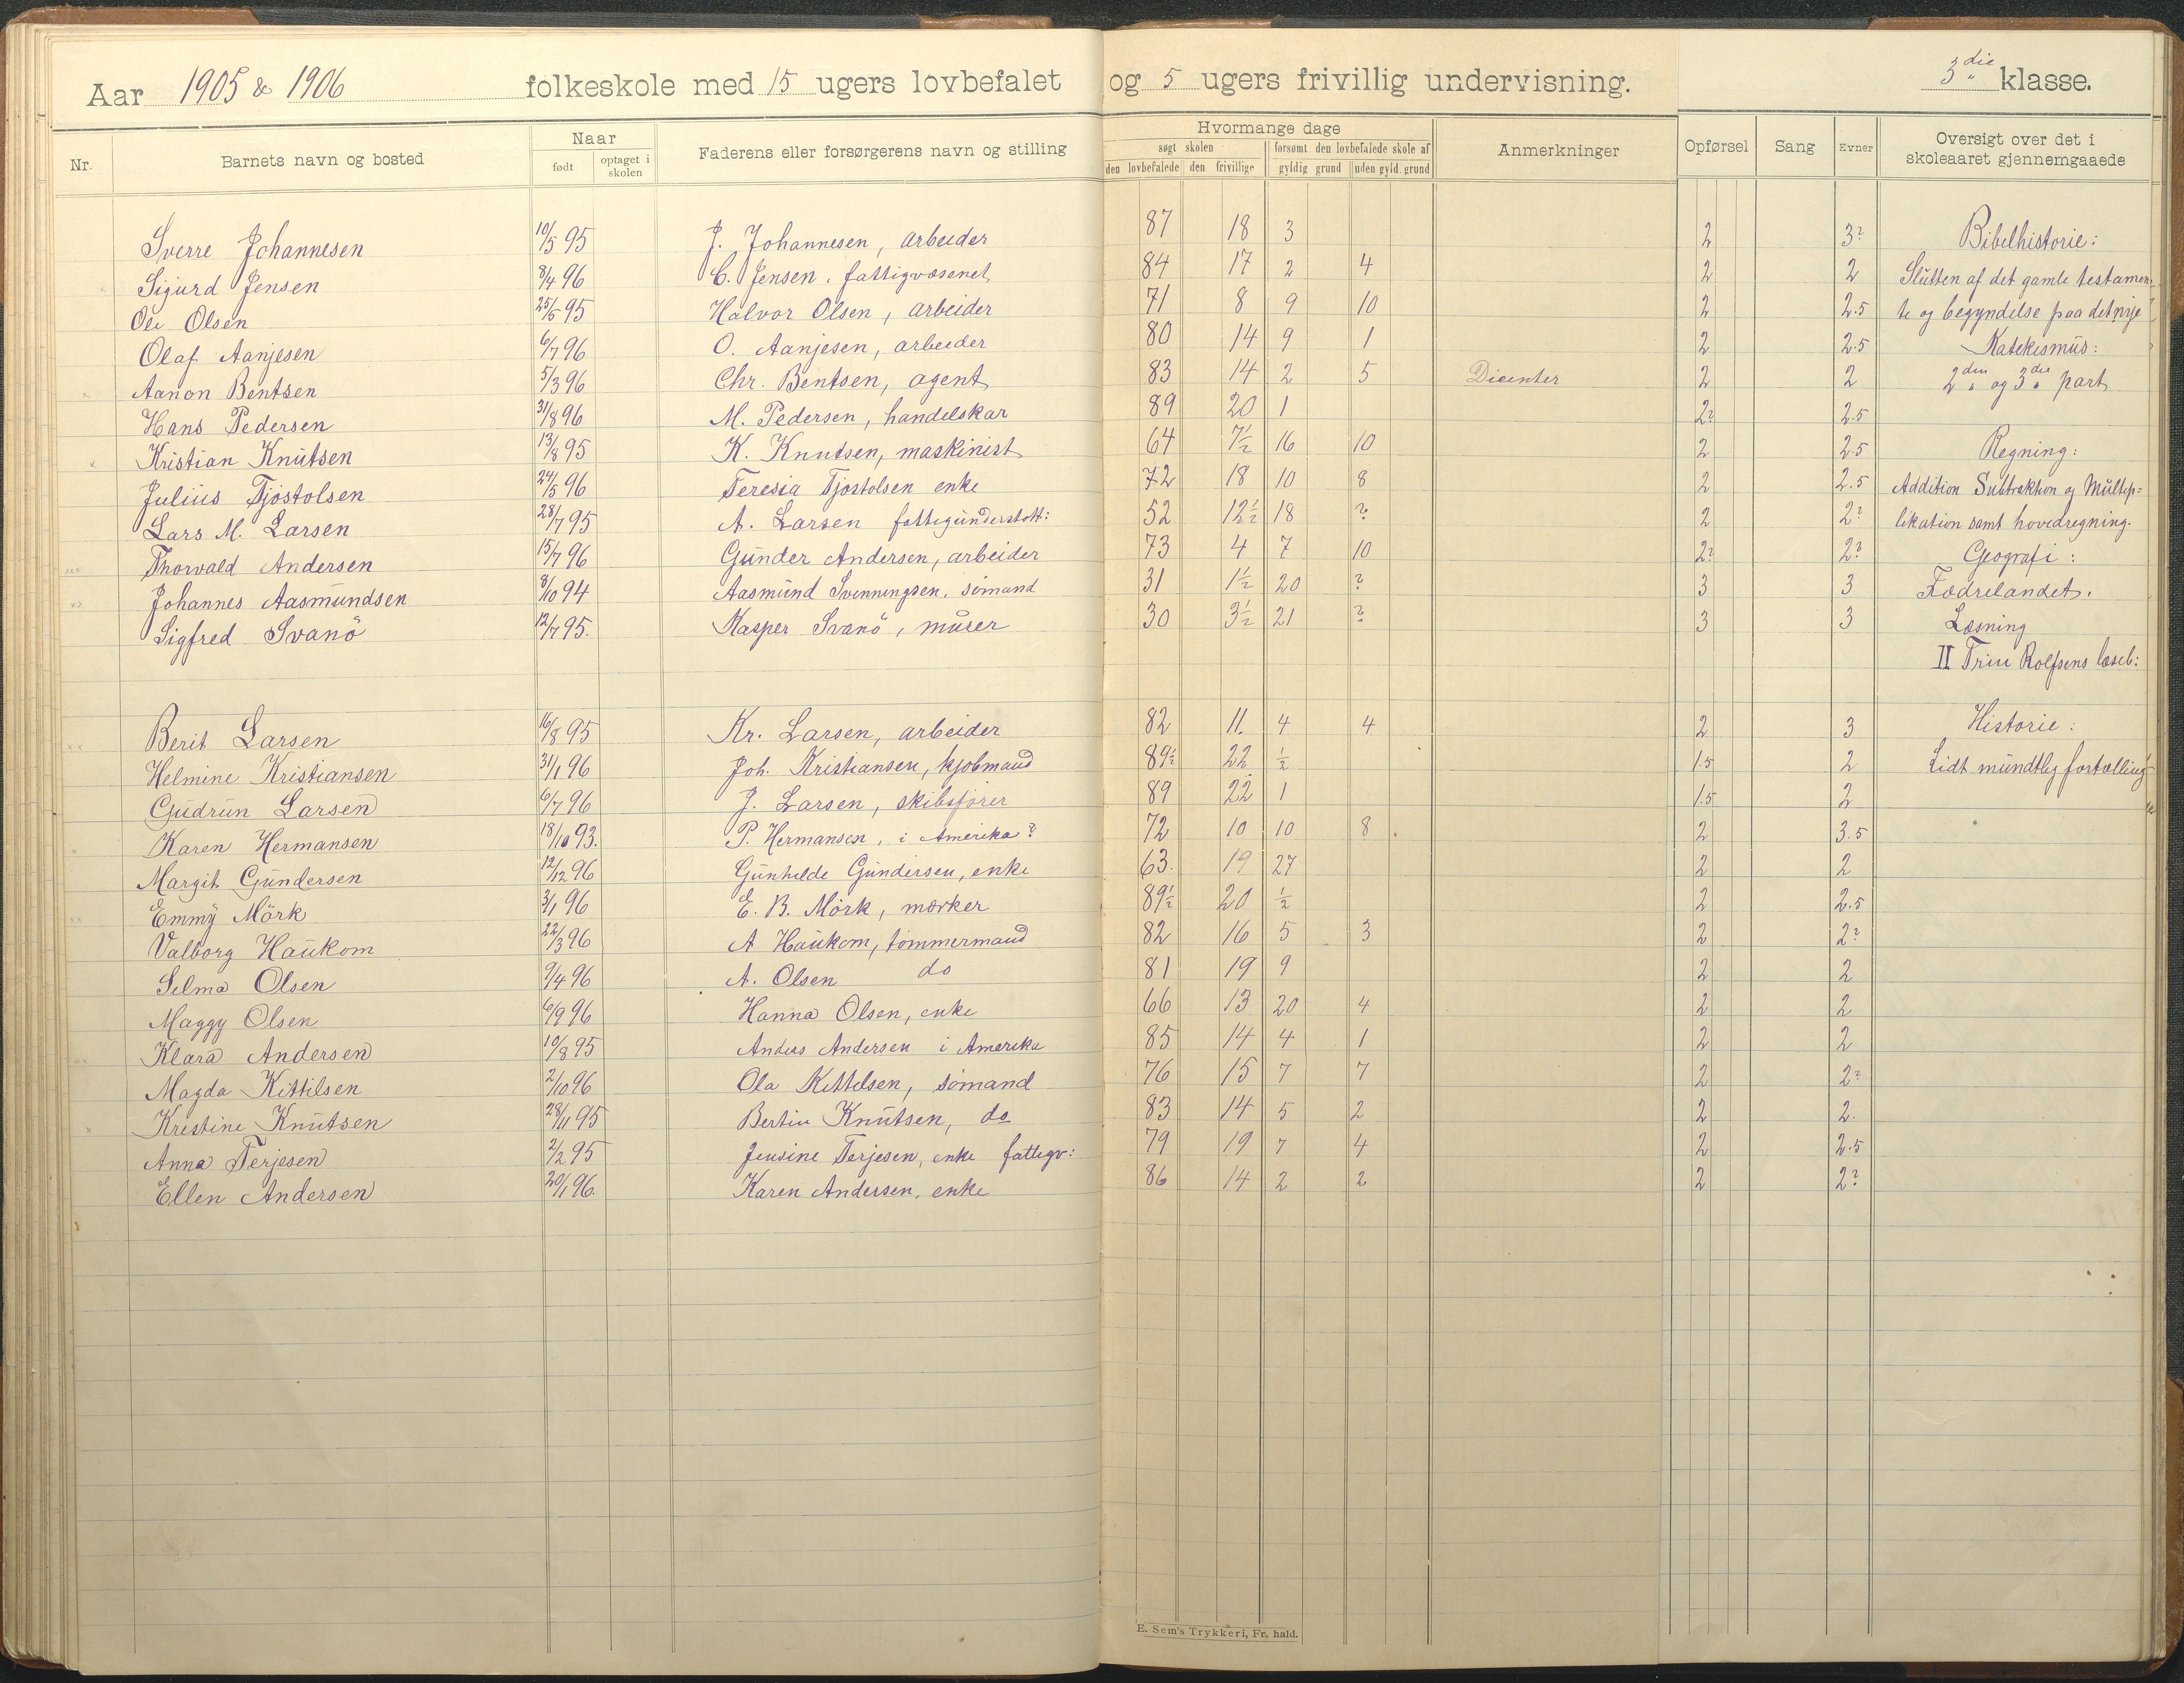 Aar 1905 & 1906 folkeskole med 15 ugers lovbefalet og 5 ugers frivillig undervisning. 3die klasse.
Nr. Barnets navn og bosted Naar født optaget i skolen Faderens eller forsørgerens navn og stilling Hvormange dage søgt skolen den lovbefalede den frivillige forsømt den lovbefalede skole af gyldig grund uden gyld. grund Anmerkninger Opførsel Sang Evner Oversigt over det i skoleaaret gjennemgaaede
Sverre Johannesen 10/5 95 J. Johannesen, arbeider 87 18 3 2 3? Bibelhistorie:
Sigurd Jensen 8/4 96 C. Jensen, fattigvæsenet 84 17 2 4 2 2 Slutten af det gamle testamen-
Ole Olsen 25/5 95 Halvor Olsen, arbeider 71 8 9 10 2 2.5 te og begyndelse paa det nye
Olaf Aanjesen 6/7 96 O. Aanjesen, arbeider 80 14 9 1 2 2.5 Katekismus:
Aanon Bentsen 5/3 96 Chr. Bentsen, agent 83 14 2 5 Dicenter 2 2 2den og 3die part
Hans Pedersen 31/8 96 M. Pedersen, handelskar 89 20 1 2? 2.5
Kristian Knutsen 13/8 95 K. Knutsen, maskinist 64 7½ 16 10 2 2.5 Regning:
Julius Tjöstolsen 24/5 96 Teresia Tjostolsen enke 72 18 10 8 2 2.5 Addition Subtraktion og Multip=
Lars M. Larsen 28/7 95 A. Larsen fattigunderstøtt: 52 12½ 18 ? 2 2? likation samt hovedregning.
Thorvald Andersen 15/7 96 Gunder Andersen, arbeider 73 4 7 10 2? 2? Geografi:
Johannes Aasmundsen 8/10 94 Aasmund Svenningsen, sömand 31 1½ 20 ? 3 3 Fædrelandet.
Sigfred Svanö 12/7 95. Kasper Svanö, murer 30 3½ 21 ? 3 3 Læsning
II Trin Rolfsens læseb:
Berit Larsen 16/8 95 Kr. Larsen, arbeider 82 11. 4 4 2 3 Historie:
Helmine Kristiansen 31/1 96 Joh. Kristiansen, kjøbmand 89½ 22 ½ 1.5 2 Lidt mundtlig fortælling
Gudrun Larsen 6/7 96 J. Larsen, skibsfører 89 22 1 1.5 2
Karen Hermansen 18/10 93. P. Hermansen, i Amerika? 72 10 10 8 2 3.5
Margit Gundersen 12/12 96 Gunhilde Gundersen, enke 63. 19 27 2 2
Emmy Mörk 3/1 96 E. B. Mörk, mærker 89½ 20 ½ 2 2.5
Valborg Haukom 22/3 96 A Haukom, tömmermand 82 16 5 3 2 2?
Selma Olsen 9/4 96 A. Olsen do 81 19 9 2 2
Maggy Olsen 6/9 96 Hanna Olsen, enke 66 13 20 4 2 2
Klara Andersen 10/8 95 Anders Andersen i Amerika 85 14 4 1 2 2
Magda Kittilsen 2/10 96 Ola Kettelsen, sömand 76 15 7 7 2 2?
Kristine Knutsen 28/11 95 Bertin Knutsen, do 83 14 5 2 2 2.
Anna Terjesen 2/2 95 Jensine Terjesen, enke fattigv: 79 19 7 4 2 2.5
Ellen Andersen 20/1 96. Karen Andersen, enke 86 14 2 2 2 2?
E. Sem's Trykkeri, Fr. hald.